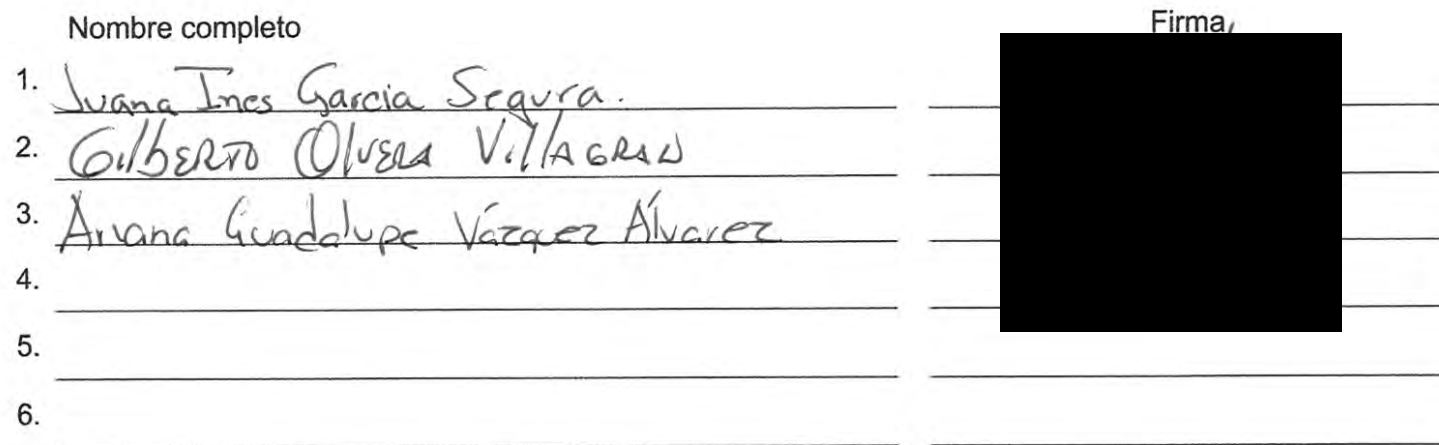 Nombre completo Firma
1. Juana Ines Garcia Segura.
2. GilbERTO OlvERA VillAGRAN
3. Ariana Guadalupe Vázquez Álvarez
4.
5.
6.